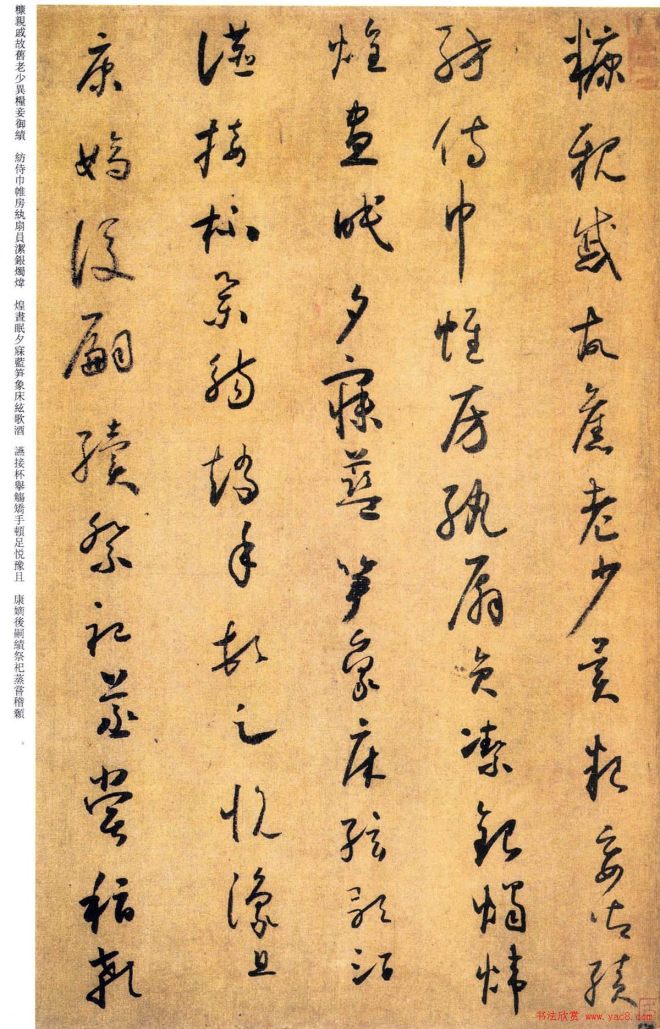 糠親戚故舊老少異粮妾御績
紡侍巾帷房紈扇員潔銀燭煒
煌晝眠夕寐藍笋象床絃歌酒
讌接杯舉觴矯手頓足悦豫且
康嫡後嗣續祭祀蒸嘗稽顙
糠親戚故舊老少異糧妾御績 紡侍巾帷房紈扇員潔銀燭煒 煌晝眠夕寐藍笋象床絃歌酒 讌接杯舉觴矯手頓足悦豫且 康嫡後嗣續祭祀蒸嘗稽顙
书法欣赏 www.yac8.com